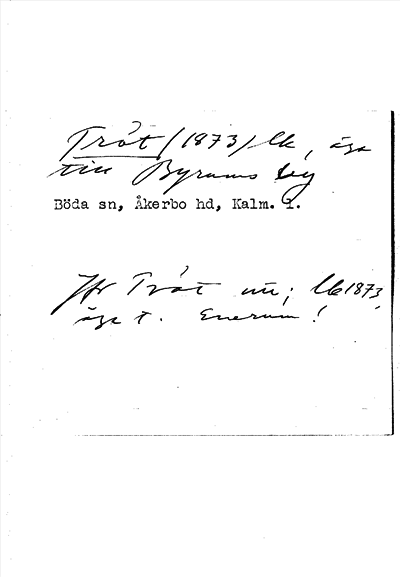 Tråt (1873) lk, äga
till Byrums by
Böda sn, Åkerbo hd, Kalm. l.
Jfr Tråt nu; lk 1873,
äga t. Enerum!